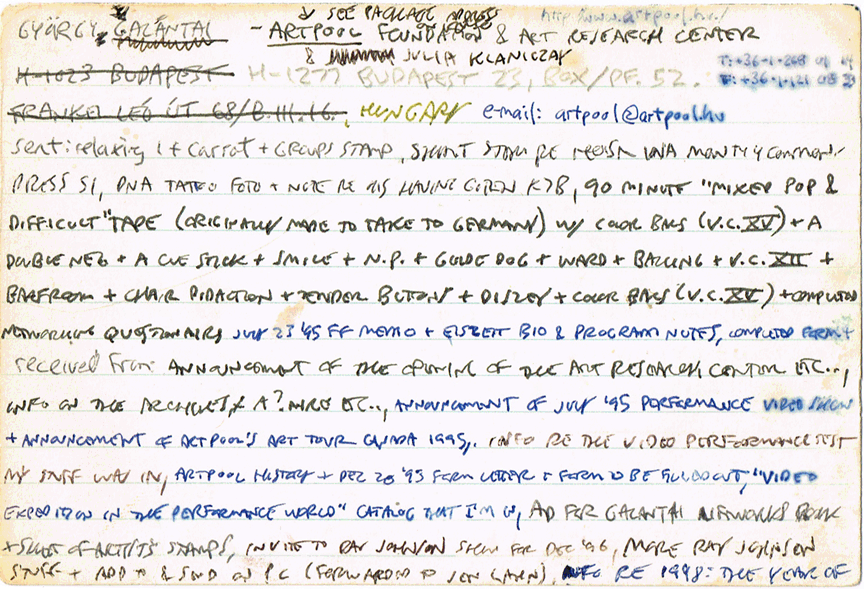 ↓ SEE PACKAGE ADDRESS http://www.artpool.hu/
GYÖRGY GALÁNTAI - ARTPOOL FOUNDATION & ART RESEARCH CENTER
& JULIA KLANICZAY
H-1023 BUDAPEST H-1277 BUDAPEST 23, BOX/PF. 52. T: +36-1-268 01 14
FRANKEL LEÓ ÚT 68/B.III.16., HUNGARY e-mail: artpool@artpool.hu F: +36-1-121 08 33
sent: relaxing 1 + CARROT + GROUPS STAMP, SHORT STORY RE MEISN DNA MONTY COMMON/
PRESS 51, DNA TATOO FOTO + NOTE RE HIS HAVING GIVEN K7B, 90 MINUTE "MIXED POP &
DIFFICULT" TAPE (ORIGINALLY MADE TO TAKE TO GERMANY) W/ COLOR BARS (V.C. XV) + A
DOUBLE NEG + A CUE STICK + SMILE + N.P. + GUIDE DOG + WARD + BALLING + V.C. XII +
BAREROOM + CHAIR PIDACTION + TENDER BUTTONS + DISLEY + COLOR BARS (V.C. XV) + COMPLETED
NETWORKING QUESTIONAIRS JULY 23 '95 FF MEMO + BIO & PROGRAM NOTES, COMPLETED FORM +
received from: ANNOUNCEMENT OF THE OPENING OF THE ART RESEARCH CENTER ETC..,
INFO ON THE ARCHIVES, A? ETC.., ANNOUNCEMENT OF JULY '95 PERFORMANCE VIDEO SHOW
+ ANNOUNCEMENT OF ARTPOOL'S ART TOUR CANADA 1995,. INFO RE THE VIDEO PERFORMANCE FEST
MY STUFF WAS IN, ARTPOOL HISTORY + DEC 20 '95 FORM LETTER + FORM TO BE FILLED OUT, "VIDEO
EXPEDITION IN THE PERFORMANCE WORLD" CATALOG THAT I'M IN, AD FOR GALANTAI NETWORKS BOOK
+ SHEET OF ARTISTS STAMPS, INVITE TO RAY JOHNSON SHOW FOR DEC '96, MORE RAY JOHNSON
STUFF + ADD TO & SEND ON PC (FORWARDED TO JEN), INFO RE 1998: THE YEAR OF